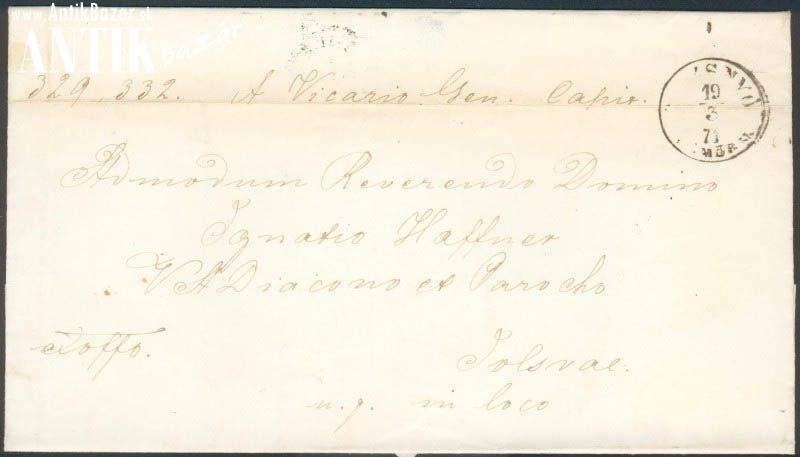 www.AntikBazar.sk
ANTIK
bazár
329, 332. A Vicario Gen. Capit.
SNYÓ
19
3
71
Admodum Reverendo Domino
Ignatio Haffner
V A Diacono et Parocho
exoffo.
Jolsvae.
u. g. in loco